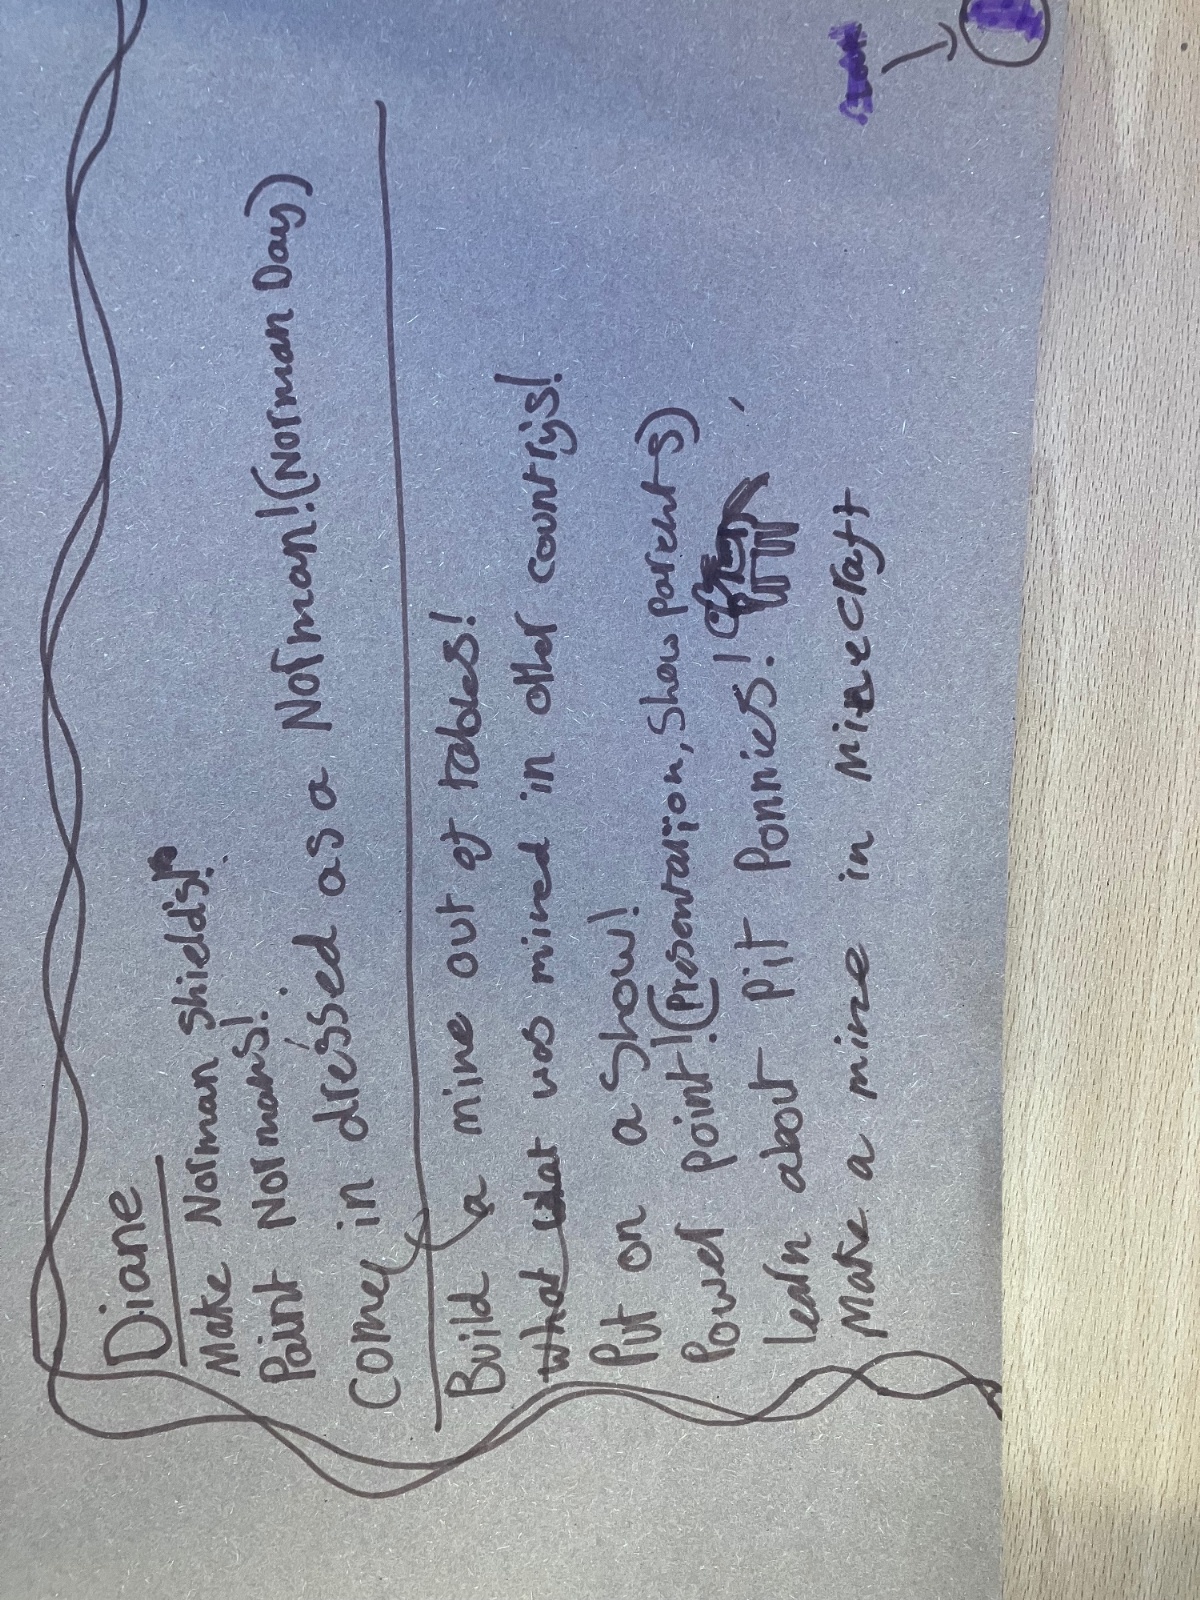 Diane
Make Norman shields!
Paint Normans!
Come in dressed as a Norman! (Norman Day)
Build a mine out of tables!
What was mined in other countrys!
Put on a show!
Power point! (Presentation, show parents)
learn about Pit Ponnies!
Make a mine in minecraft